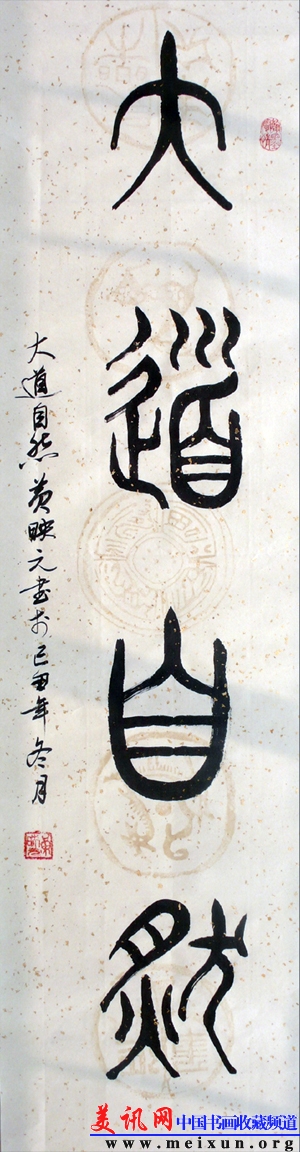 大道自然
大道自然 黄映元书于己丑年冬月
美讯网 中国书画收藏频道
www.meixun.org